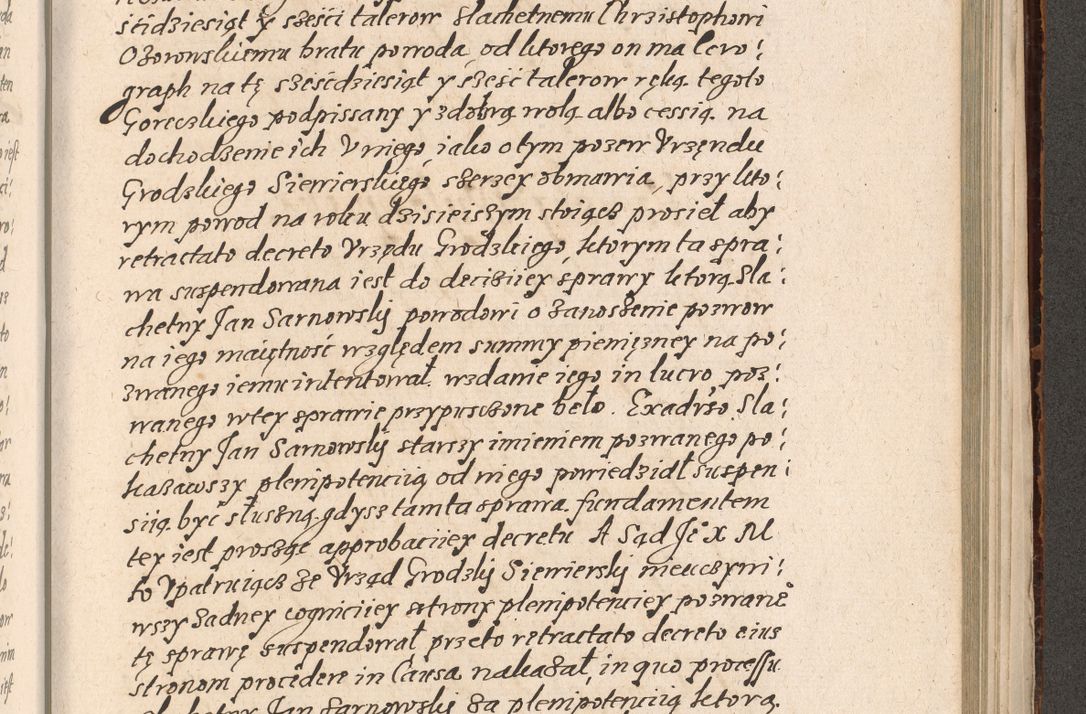 śćidziesiąt y sześći talerow Slachetnemu Chrzistophowi
Ożorowskiemu bratu powoda, od ktorego on ma Ciro:
graph na tę sześćdziesiąt y sześć talerow ręką tegoto
Goreczkiego podpissany y z dobrą wolą albo cessią na
dochodzenie ich V niego, iako o tym pozew Vrzęndu
Grodzkiego Siewierskiego szerzey obmawia, przy kto:
rym powod na roku dzisieiszym stoiącz prosieł aby
retractato decreto Vrzędu Grodzkiego, ktorym ta spra:
wa suspendowana iest do deciziiey sprawy ktorą Sla:
chetny Jan Sarnowsky powodowi o zanoszenie pozwow
na iego maiętność względem summy pieniężney na po:
zwanego iemu intentował. wzdanie iego in lucro poz:
wanego wtey sprawie przypuszczone beło. Exadrso Sla:
chetny Jan Sarnowsky starszy imieniem pozwanego po:
kazawszy plenipotenciią od niego powiedział suspen:
siią być słuszną, gdysz tamta sprawa fundamentem
tey iest prosząc approbaciiey decretu A Sąd Je° X M
to Vpatruiącz że Vrząd Grodzky Siewiersky nieuczyni:
wszy żadney cogniciiey strony plenipotenciey pozwane°
tę sprawę suspendował przeto retractato decreto eius
stronom procedere in Causa nakazał, in quo processu
Slachetny Jan Sarnowsky za plenipotenciią ktorą